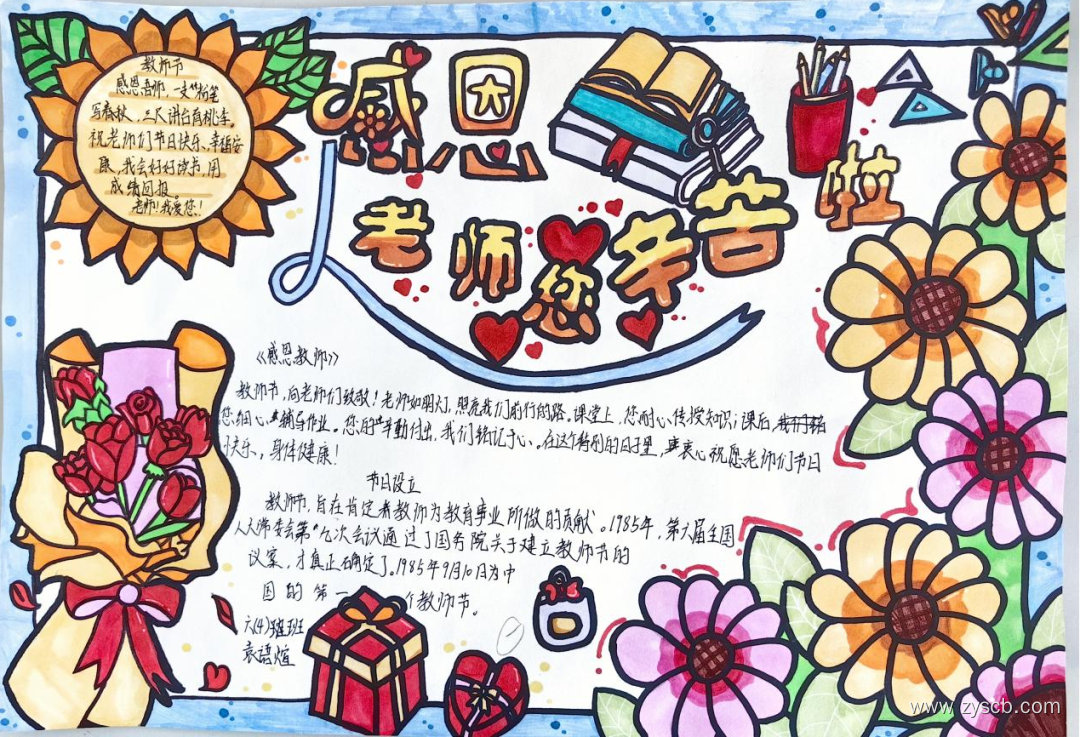 教师节
感恩吾师，一支粉笔
写春秋，三尺讲台育桃李。
祝老师们节日快乐、幸福安
康，我会好好读书，用
成绩回报
老师！我爱您！
感恩
老师您辛苦啦
《感恩教师》
教师节，向老师们致敬！老师如明灯，照亮我们前行的路。课堂上，您耐心传授知识；课后，
您细心辅导作业。您的辛勤付出，我们铭记于心。在这个特别的日子里，衷心祝愿老师们节日
快乐，身体健康！
节日设立
教师节，旨在肯定着教师为教育事业所做的贡献。1985年，第六届全国
人大常委会第九次会议通过了国务院关于建立教师节的
议案，才真正确定了。1985年9月10日为中
国的第一个教师节。
六(4)班班
袁语煊
www.zyscb.com